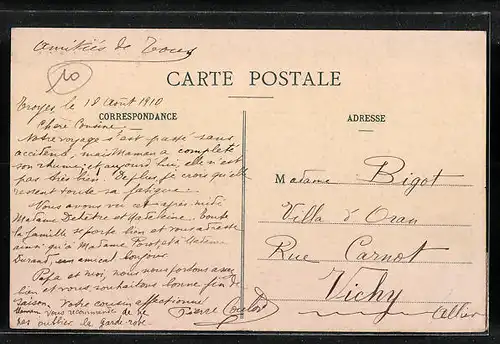 Amitiés de Tous
10
CARTE POSTALE
Troyes le 18 Août 1910
CORRESPONDANCE
ADRESSE
Chère Cousine
Notre voyage s'est passé sans
accident, mais Maman a complété
son rhume, et aujourd'hui, elle n'est
pas très bien! De plus je crois qu'elle
ressent toute sa fatigue.
Nous avons vu cet après-midi
Madame et Madeleine. toute
la famille se porte bien et vous adresse
ainsi qu'à Madame
Durand, un amical bonjour.
Papa et moi, nous nous portons assez
bien et vous souhaitons bonne fin de
saison. Votre cousin affectionné
Pierre
Maman vous recommande de ne
pas oublier la garde-robe.
Madame Bigot
Villa d'Oran
Rue Carnot
Vichy
Allier